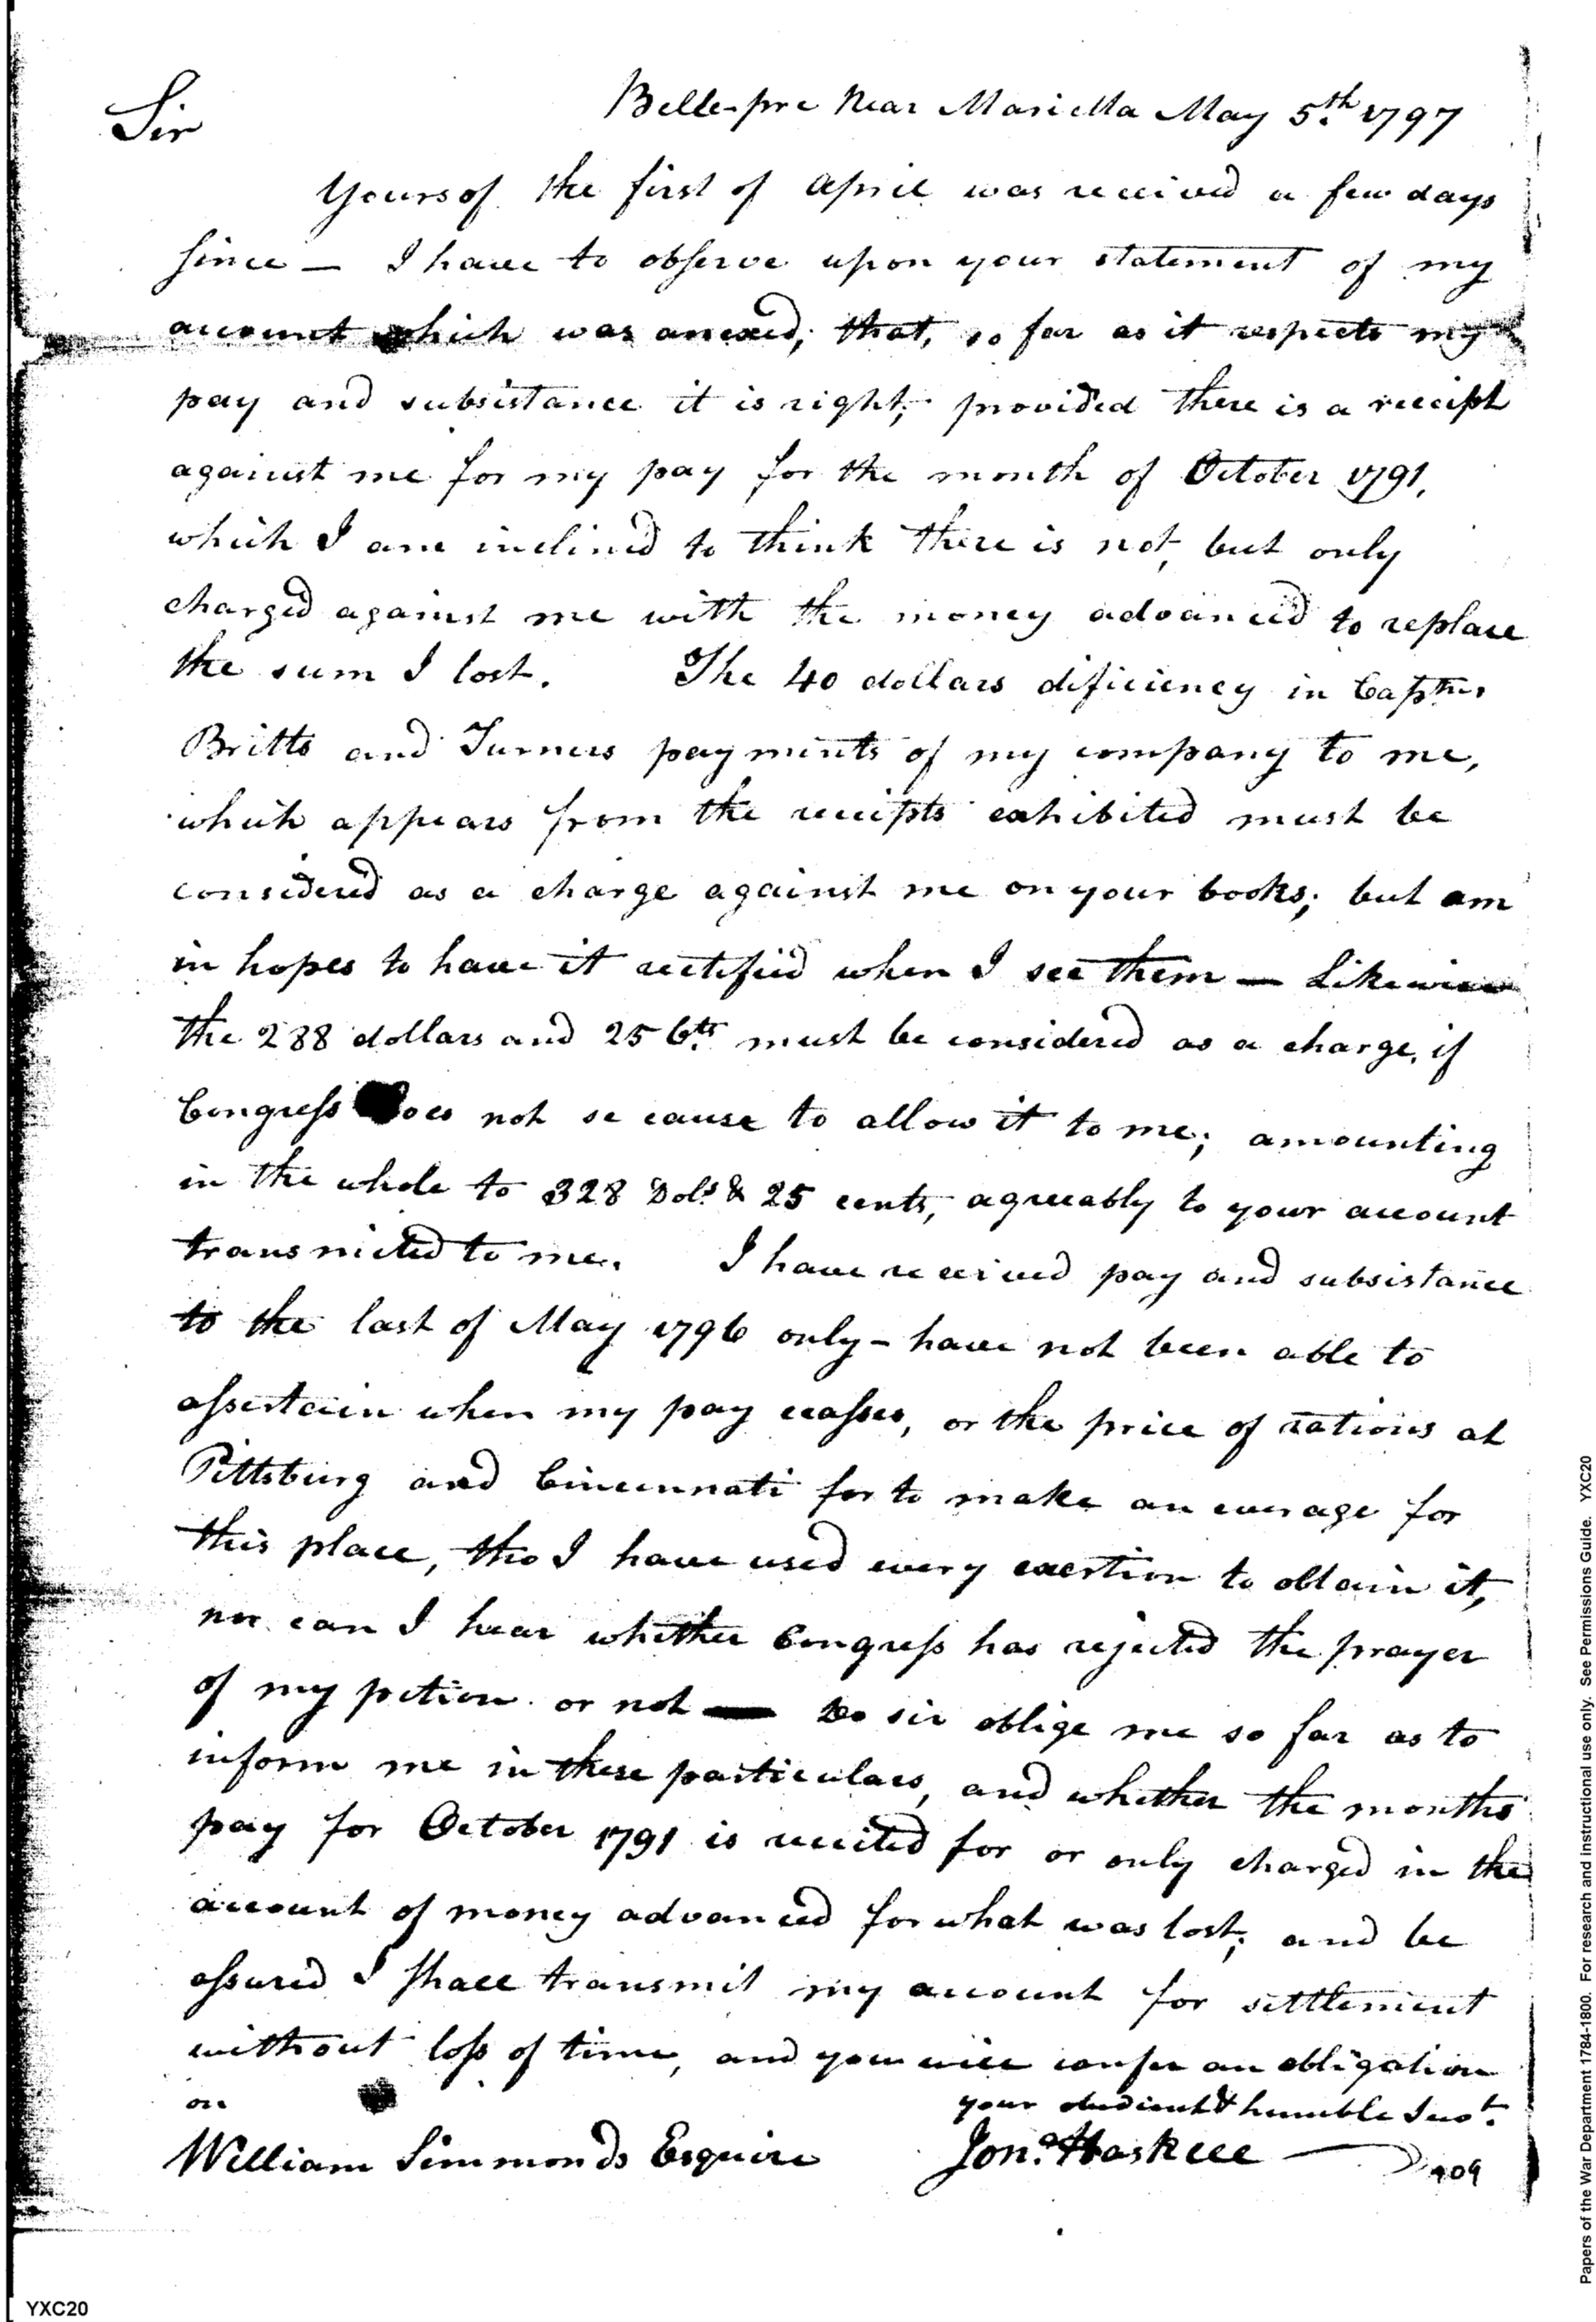 Belle-pre Near Marietta May 5.th 1797
Sir
Yours of the first of April was received a few days
since — I have to observe upon your statement of my
account which was anexed; that, so far as it respects my
pay and subsistance it is right; provided there is a receipt
against me for my pay for the month of October 1791,
which I am inclined to think there is not, but only
charged against me with the money advanced to replace
the sum I lost. The 40 dollars dificiency in Captns
Britts and Turners payments of my company to me,
which appears from the receipts exhibited must be
considered as a charge against me on your books; but am
in hopes to have it rectified when I see them — Likewise
the 288 dollars and 25 Cts. must be considered as a charge, if
Congress does not se cause to allow it to me; amounting
in the whole to 328 Dols. & 25 cents, agreeably to your account
transmited to me. I have received pay and subsistance
to the last of May 1796 only – have not been able to
assertain when my pay ceasses, or the price of rations at
Pittsburg and Cincunnati for to make an everage for
this place, tho I have used every exertion to obtain it,
nor can I hear whether Congress has rejected the prayer
of my petion or not — Do sir oblige me so far as to
inform me in these particulars, and whether the months
pay for October 1791 is receited for or only charged in the
account of money advanced for what was lost; and be
assured I shall transmit my account for settlement
without loss of time, and you will confer an obligation
on your obedient & humble Servt.
William Simmonds Esquire Jona. Haskell
909
Papers of the War Department 1784-1800. For research and instructional use only. See Permissions Guide. YXC20
YXC20